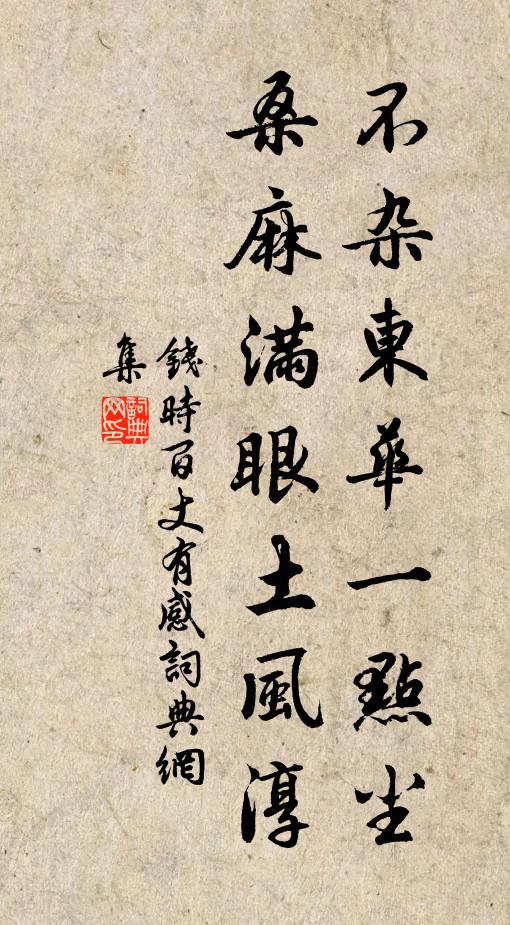 不杂東華一點尘
桑麻滿眼土風淳
錢時百丈有感詞典網
集
詞典
网印